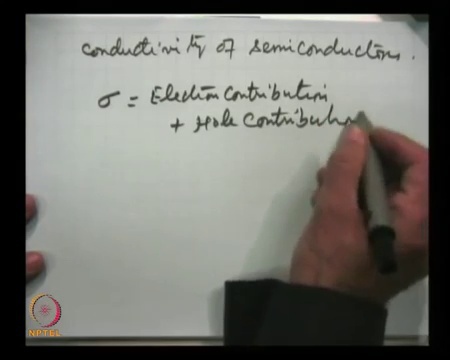 conductivity of semiconductors.
σ = Electron contribution
+ Hole contribution
NPTEL